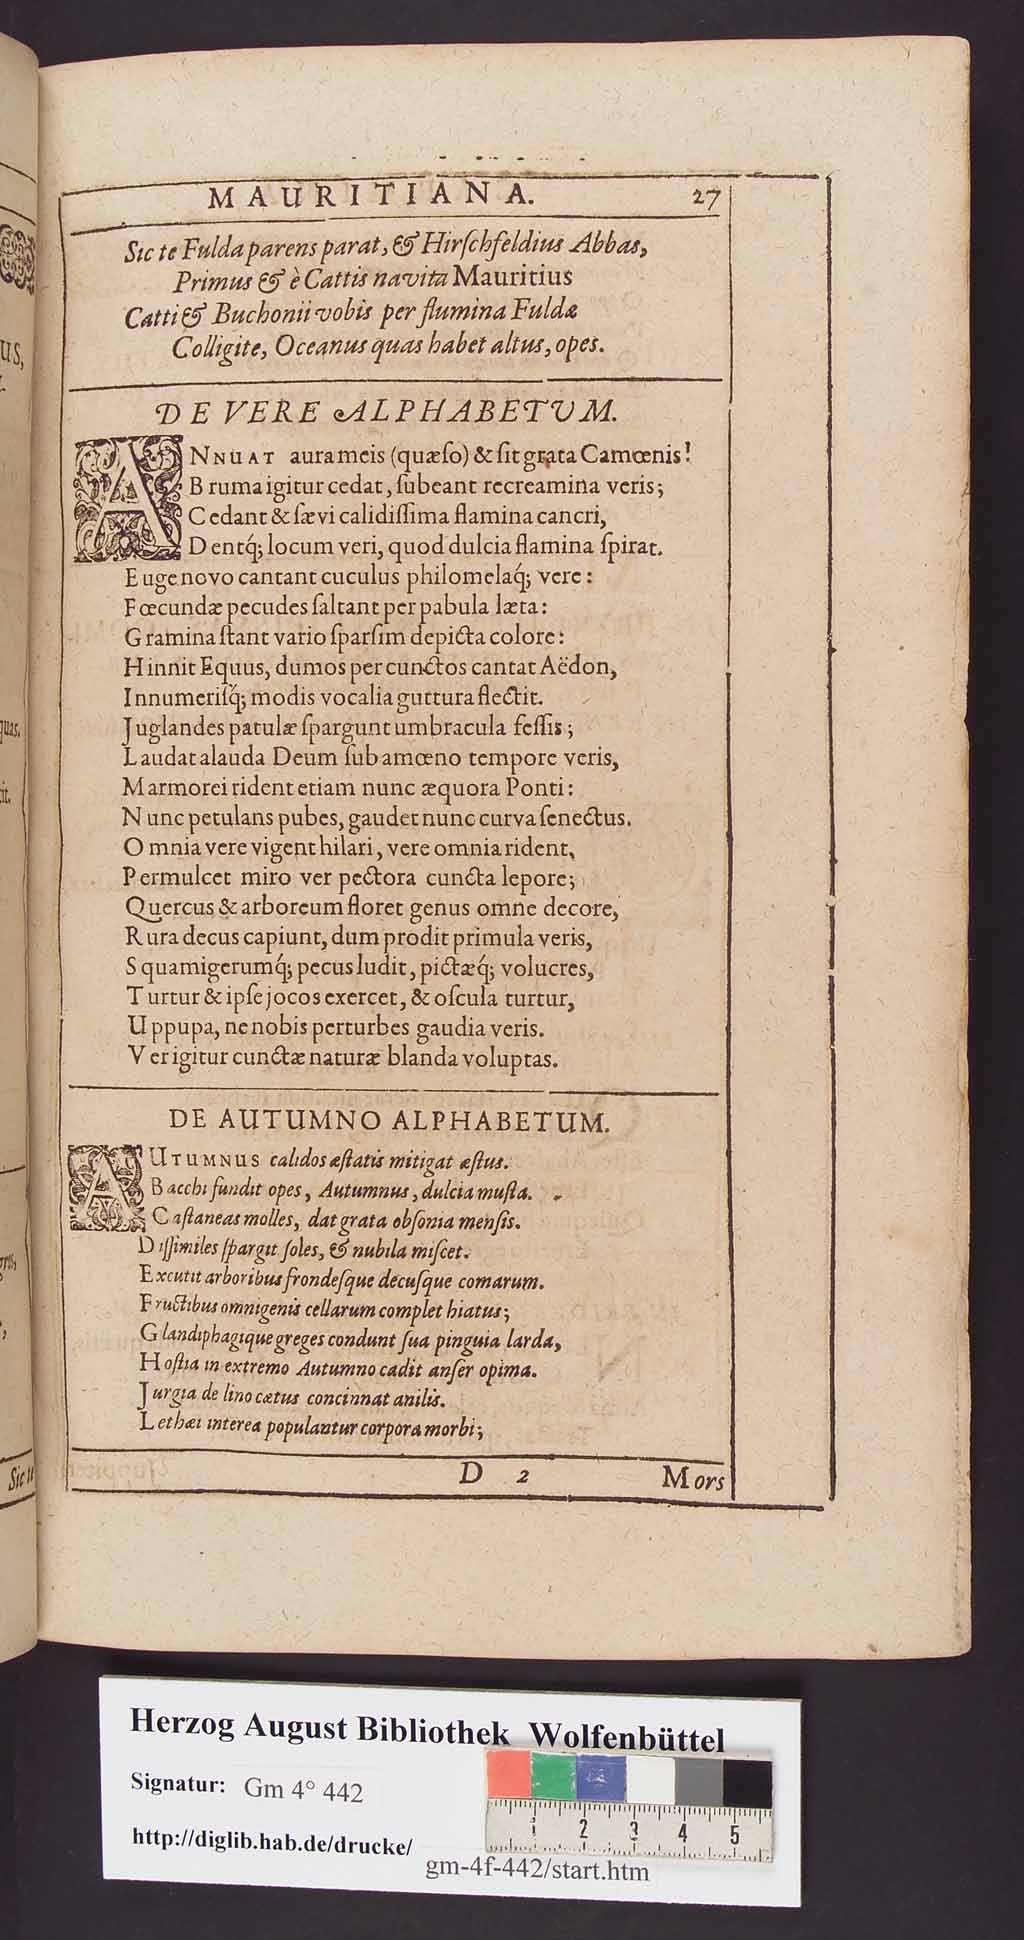 MAURITIANA. 27
Sic te Fulda parens parat, & Hirſchfeldius Abbas,
Primus & è Cattis navita Mauritius
Catti & Buchonii vobis per flumina Fuldæ
Colligite, Oceanus quas habet altus, opes.
DE VERE ALPHABETUM.
ANNUAT aura meis (quæſo) & ſit grata Camœnis!
Bruma igitur cedat, ſubeant recreamina veris;
Cedant & ſævi calidiſſima flamina cancri,
Dentq́; locum veri, quod dulcia flamina ſpirat.
Euge novo cantant cuculus philomelaq́; vere:
Fœcundæ pecudes ſaltant per pabula læta:
Gramina ſtant vario ſparſim depicta colore:
Hinnit Equus, dumos per cunctos cantat Aëdon,
Innumeriſq́; modis vocalia guttura flectit.
Juglandes patulæ ſpargunt umbracula feſſis;
Laudat alauda Deum ſub amœno tempore veris,
Marmorei rident etiam nunc æquora Ponti:
Nunc petulans pubes, gaudet nunc curva ſenectus.
Omnia vere vigent hilari, vere omnia rident,
Permulcet miro ver pectora cuncta lepore;
Quercus & arboreum floret genus omne decore,
Rura decus capiunt, dum prodit primula veris,
Squamigerumq́; pecus ludit, pictæq́; volucres,
Turtur & ipſe jocos exercet, & oſcula turtur,
Uppupa, ne nobis perturbes gaudia veris.
Ver igitur cunctæ naturæ blanda voluptas.
DE AUTUMNO ALPHABETUM.
AUTUMNUS calidos æſtatis mitigat æſtus.
Bacchi fundit opes, Autumnus, dulcia muſta.
Caſtaneas molles, dat grata obſonia menſis.
Diſſimiles ſpargit ſoles, & nubila miſcet.
Excutit arboribus frondeſque decuſque comarum.
Fructibus omnigenis cellarum complet hiatus;
Glandiphagique greges condunt ſua pinguia larda,
Hoſtia in extremo Autumno cadit anſer opima.
Jurgia de lino cætus concinnat anilis.
Lethæi interea populantur corpora morbi;
D 2 Mors
US,
quas.
cit.
Sic te
Herzog August Bibliothek Wolfenbüttel
Signatur: Gm 4° 442
http://diglib.hab.de/drucke/
gm-4f-442/start.htm
1 2 3 4 5